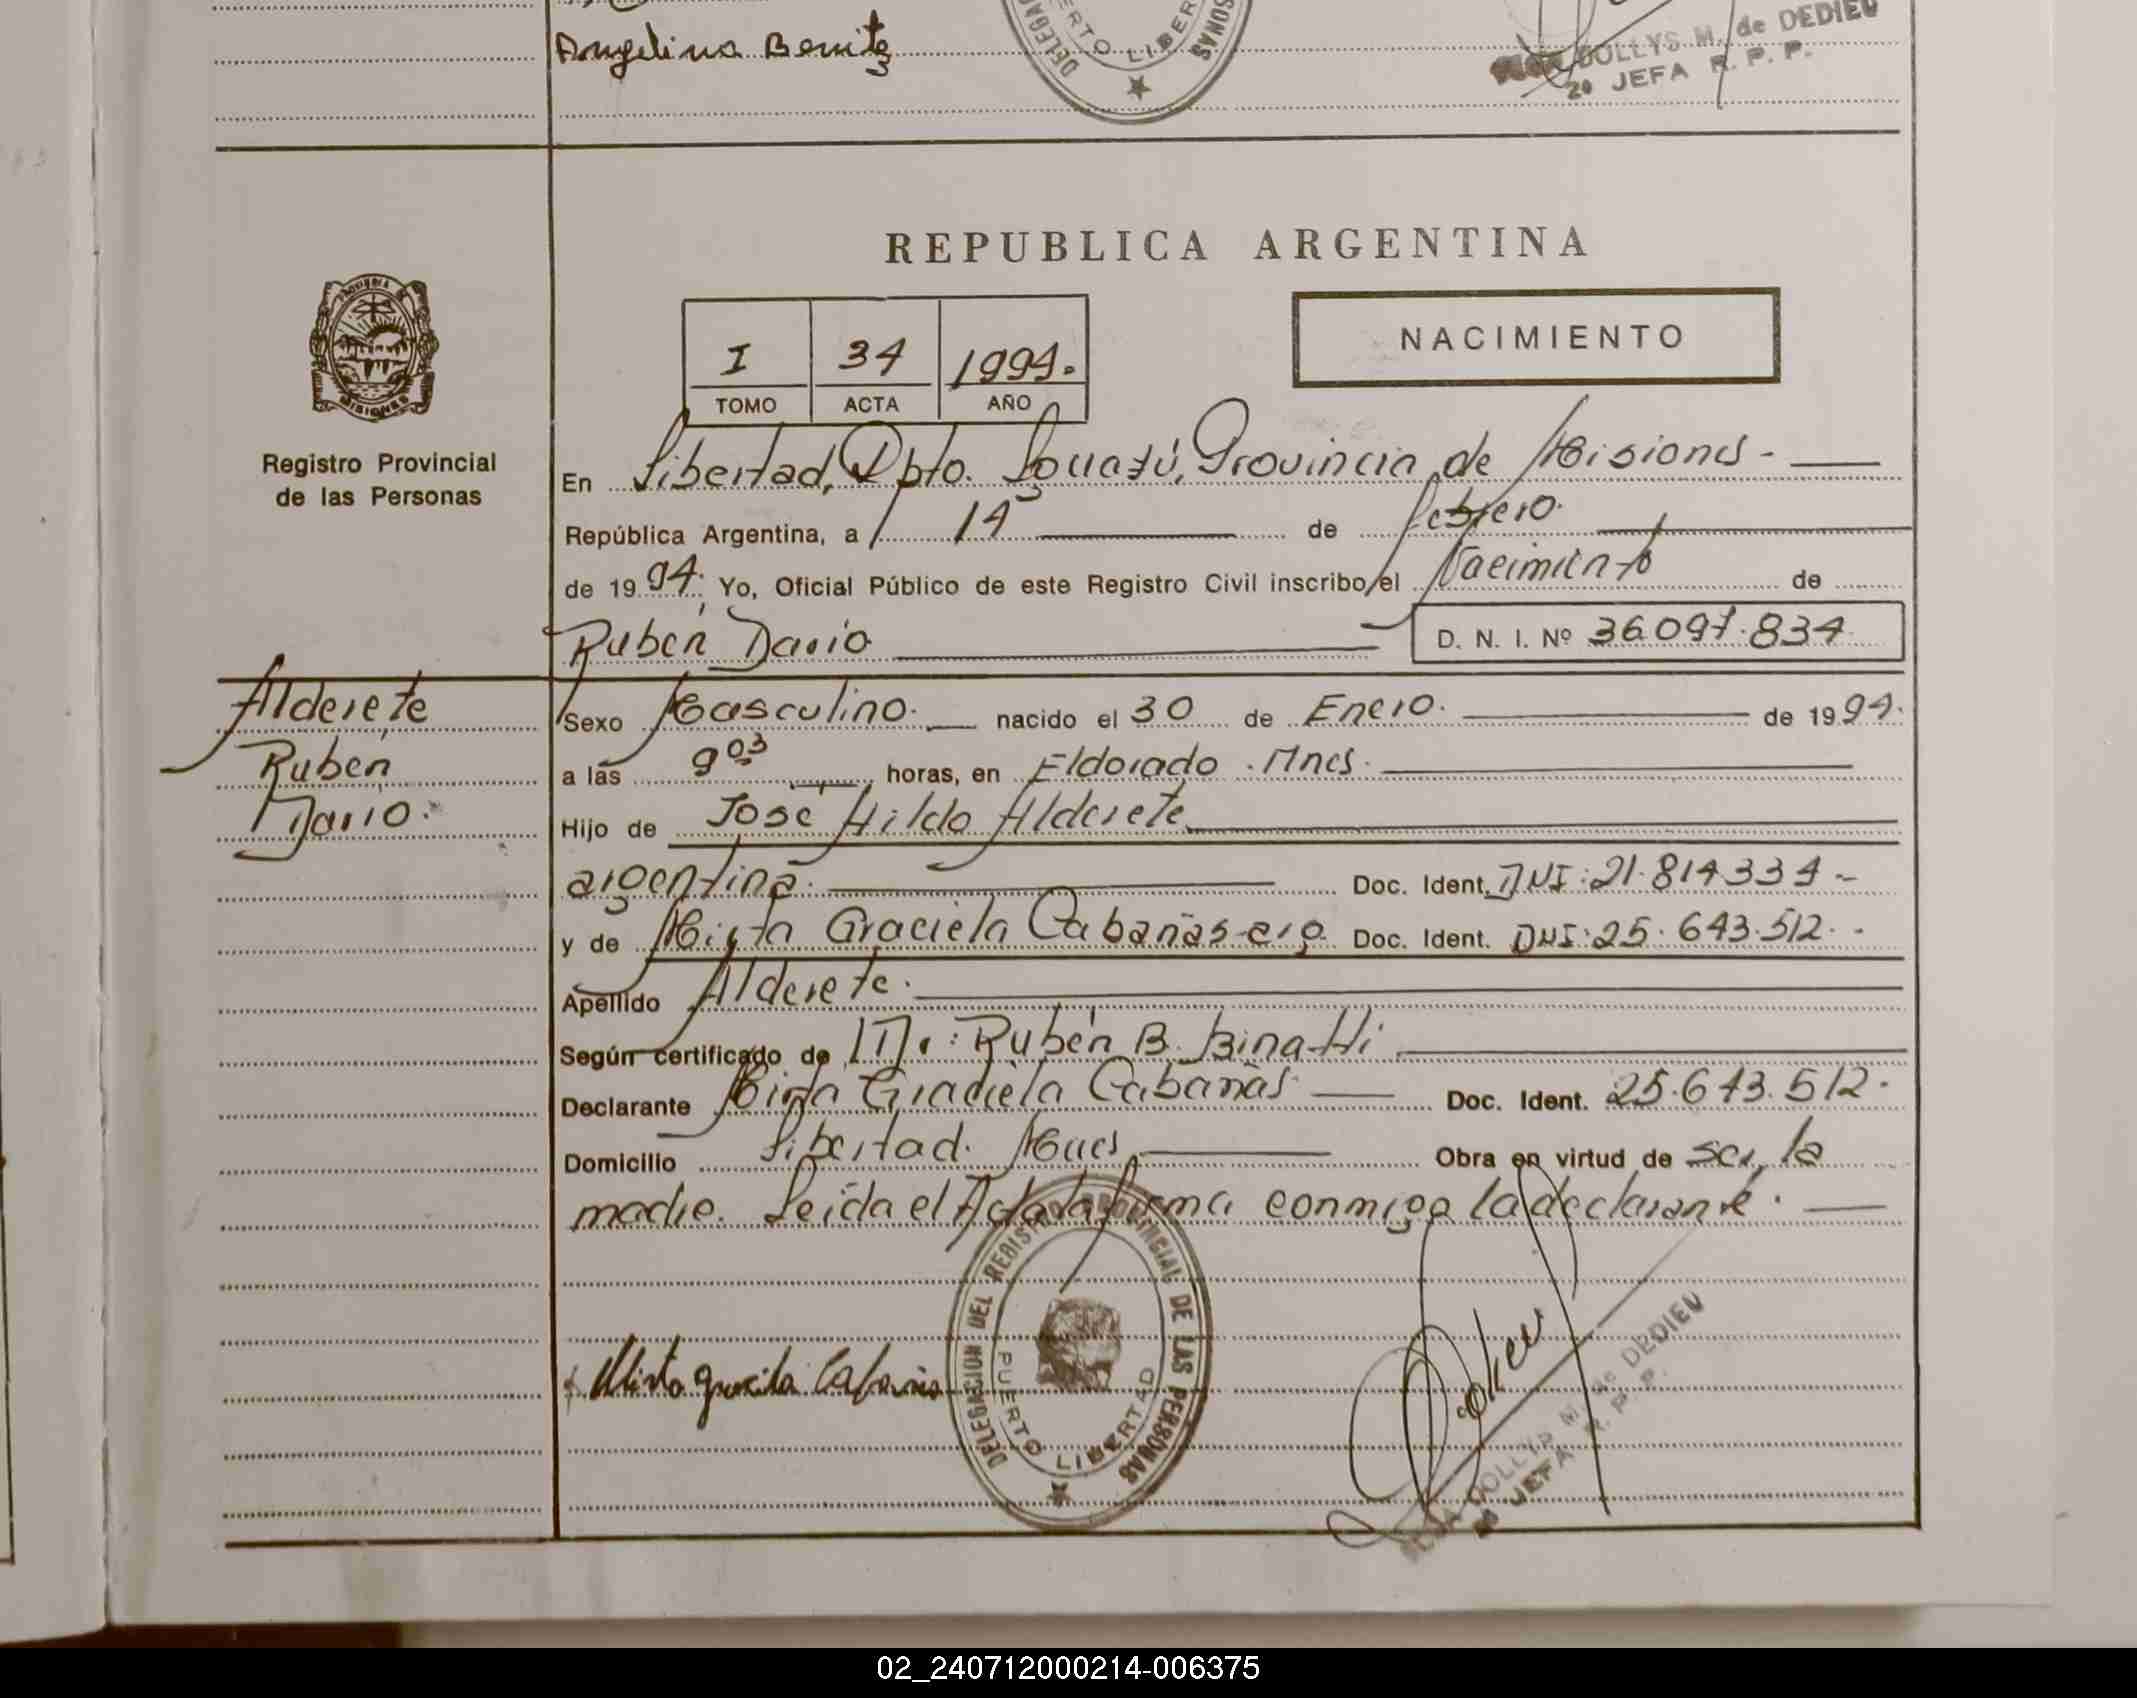 Angelina Benitez
DELEGA PUERTO LIBER SONAS
DOLLYS M. de DEDIEU
2º JEFA R. P. P.
REPUBLICA ARGENTINA
PROVINCIA DE MISIONES
Registro Provincial
de las Personas
I 34 1994.
TOMO ACTA AÑO
NACIMIENTO
En Libertad, Dpto. Iguazú, Provincia de Misiones -
República Argentina, a 14 de febrero.
de 1994; Yo, Oficial Público de este Registro Civil inscribo el Nacimiento de
Rubén Dario D. N. I. Nº 36.097.834
Alderete
Rubén
Dario.
Sexo Masculino. nacido el 30 de Enero. de 1994.
a las 9 03 horas, en Eldorado. Mnes.
Hijo de José Hildo Alderete
argentina. Doc. Ident. DNI: 21.814334 -
y de Mirta Graciela Cabañas arg. Doc. Ident. DNI: 25.643.512. -
Apellido Alderete.
Según certificado de Dr.: Rubén B. Binatti
Declarante Mirta Graciela Cabañas Doc. Ident. 25.643.512.
Domicilio Libertad. Mnes Obra en virtud de ser, la
madre. Leída el Acta la firma conmigo la declarante.
Mirta graciela Cabañas
DELEGACION DEL REGISTRO PROVINCIAL DE LAS PERSONAS
PUERTO LIBERTAD
DOLLYS M. de DEDIEU
2º JEFA R. P. P.
02_240712000214-006375